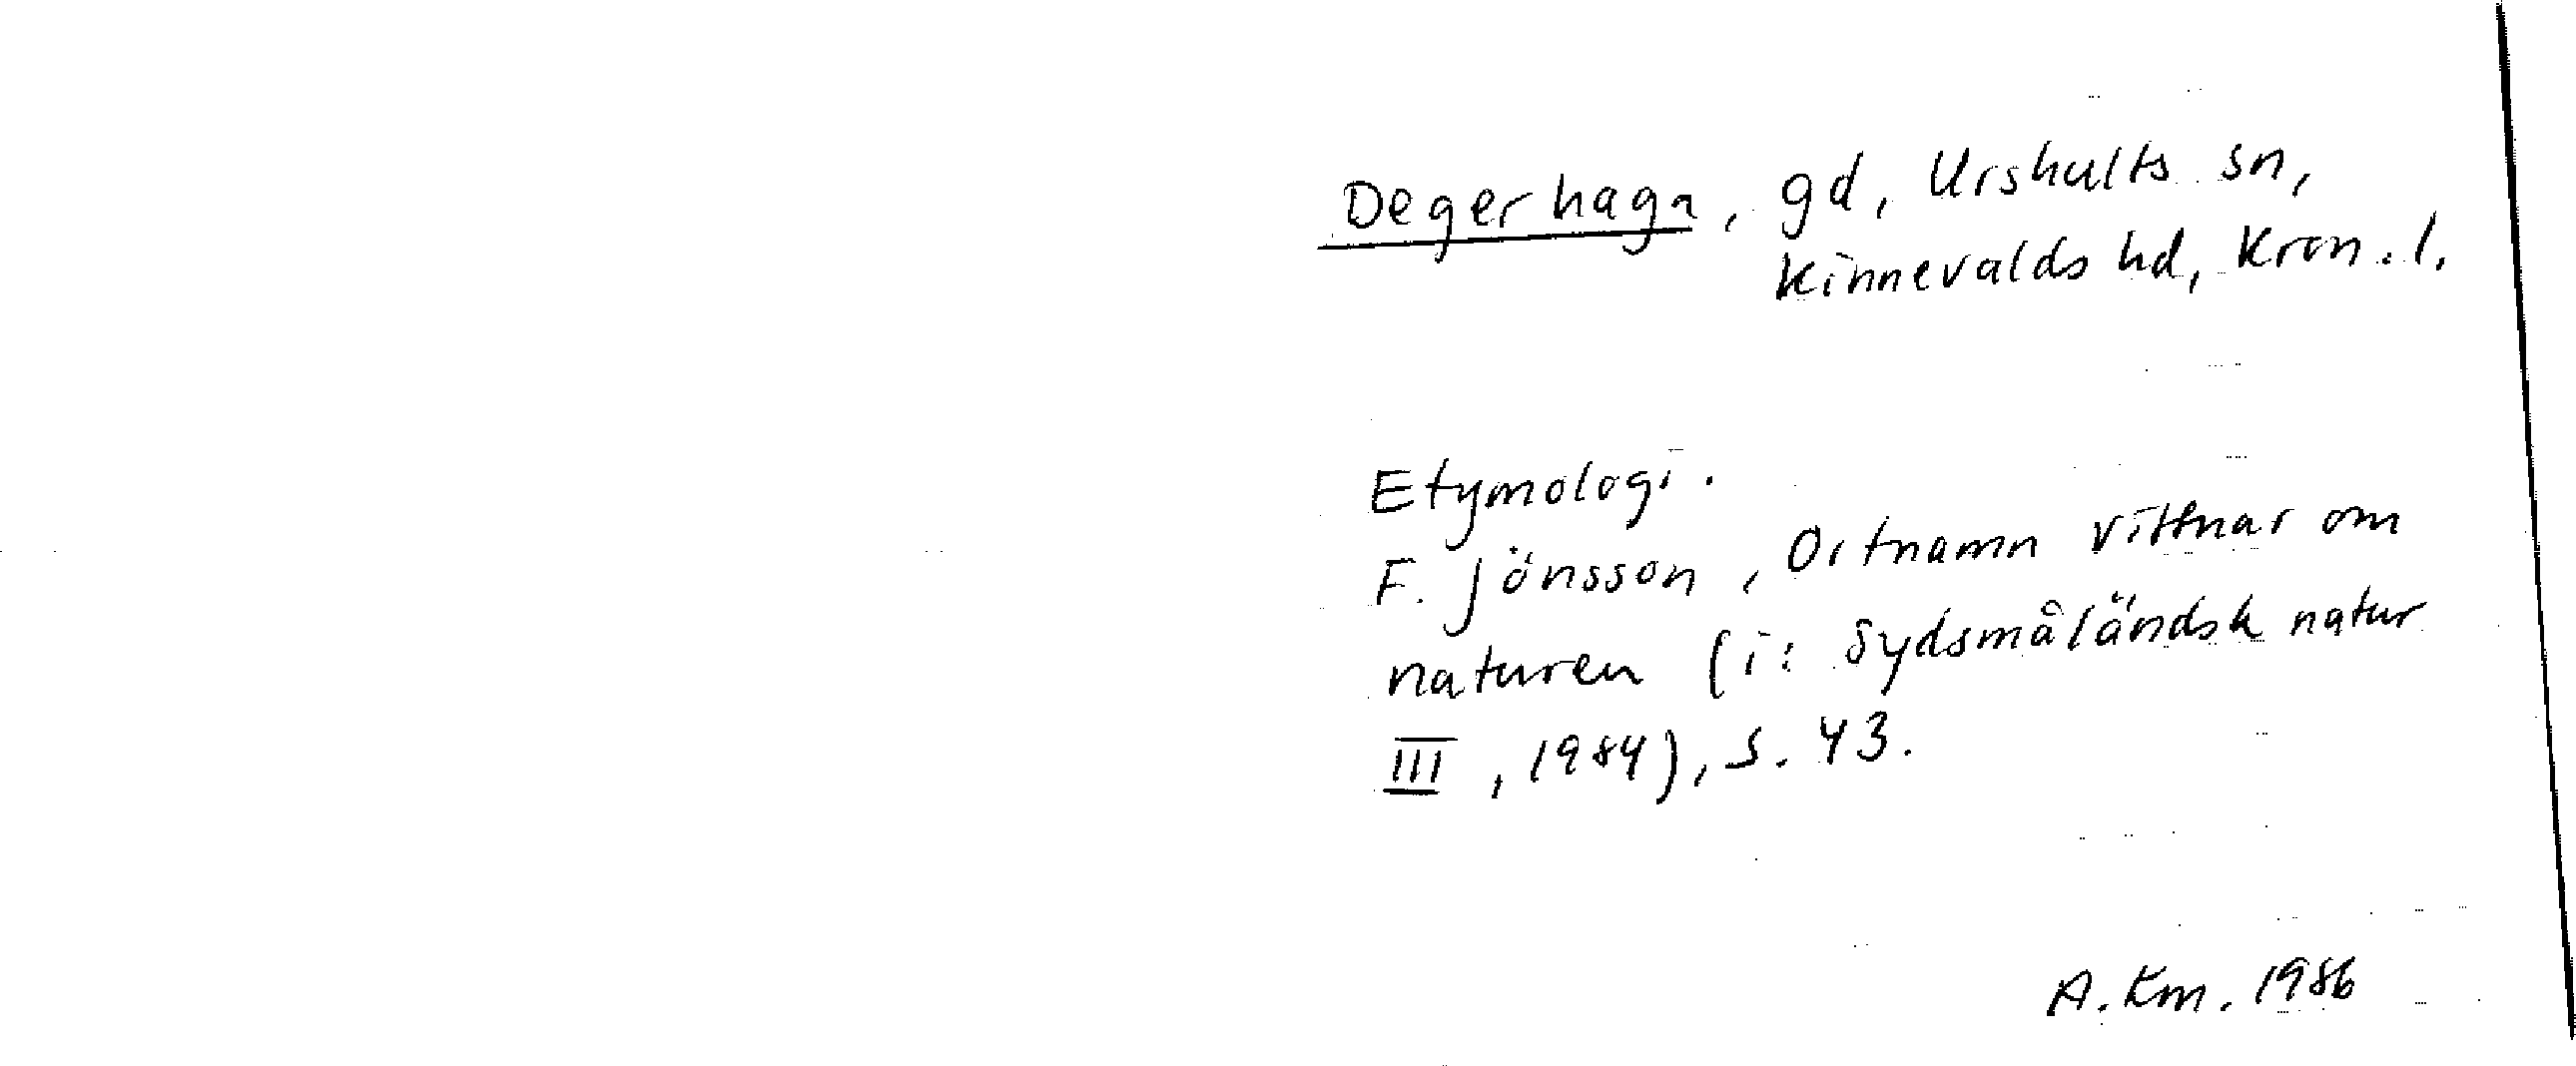 Degerhaga, gd, Urshults sn,
Kinnevalds hd, Kron. l.
Etymologi.
F. Jönsson, Ortnamn vittnar om
naturen (i: Sydsmåländsk natur
III, 1984), s. 43.
A. Km. 1986